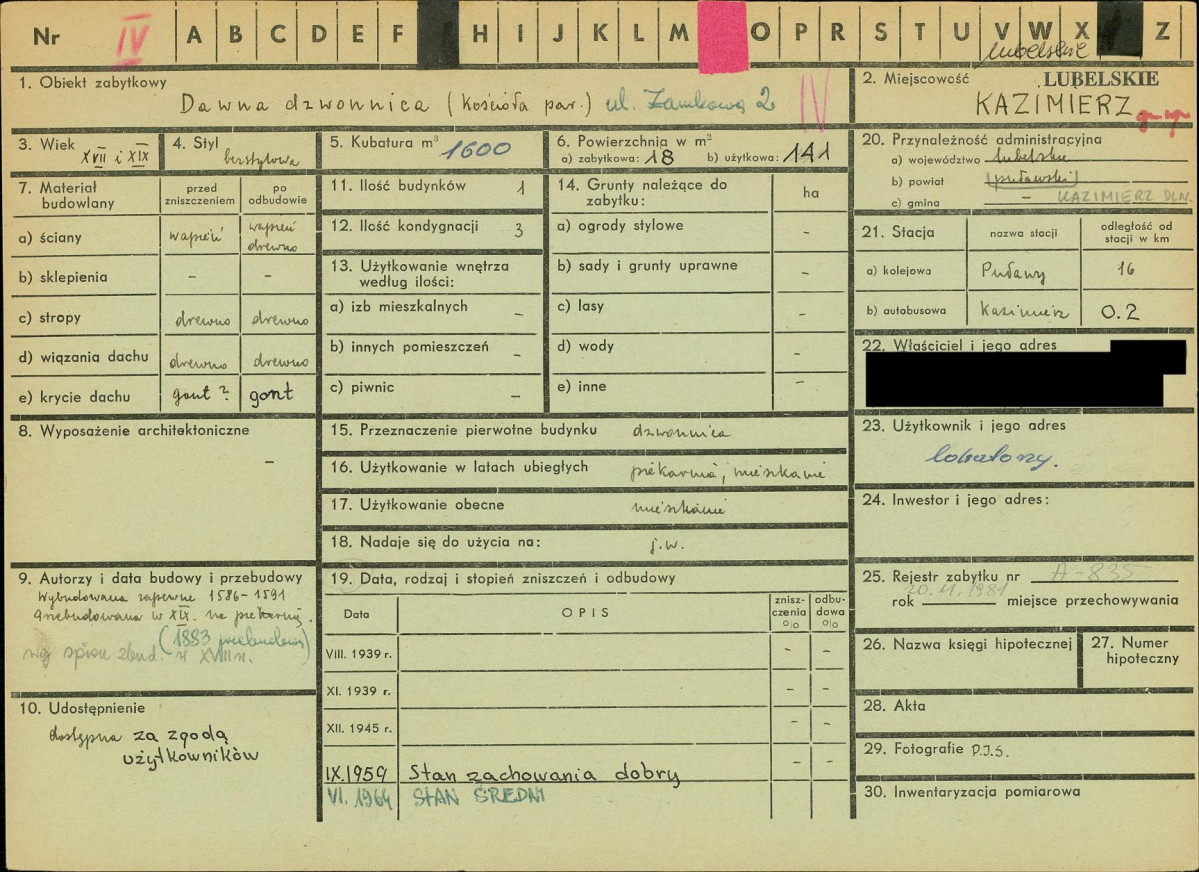 Nr IV A B C D E F H I J K L M O P R S T U V W X Z
lubelskie
1. Obiekt zabytkowy
Dawna dzwonnica (Kościoła par.) ul. Zamkowa 2 IV
2. Miejscowość LUBELSKIE
KAZIMIERZ
3. Wiek XVII i XIX
4. Styl bezstylowa
5. Kubatura m³ 1600
6. Powierzchnia w m²
a) zabytkowa: 18 b) użytkowa: 141
7. Materiał budowlany
przed zniszczeniem
po odbudowie
a) ściany wapień wapień drewno
b) sklepienia - -
c) stropy drewno drewno
d) wiązania dachu drewno drewno
e) krycie dachu gont ? gont
8. Wyposażenie architektoniczne
-
9. Autorzy i data budowy i przebudowy
Wybudowana zapewne 1586-1591
przebudowana w XIX. na piekarnię.
(1883 przebudowa)
wg spisu zbud. w XVIII w.
10. Udostępnienie
dostępna za zgodą
użytkowników
11. Ilość budynków 1
12. Ilość kondygnacji 3
13. Użytkowanie wnętrza
według ilości:
a) izb mieszkalnych -
b) innych pomieszczeń -
c) piwnic -
14. Grunty należące do
zabytku:
ha
a) ogrody stylowe -
b) sady i grunty uprawne -
c) lasy -
d) wody -
e) inne -
15. Przeznaczenie pierwotne budynku dzwonnica
16. Użytkowanie w latach ubiegłych piekarnia, mieszkanie
17. Użytkowanie obecne mieszkanie
18. Nadaje się do użycia na: j.w.
19. Data, rodzaj i stopień zniszczeń i odbudowy
Data OPIS zniszczenia o|o odbudowa o|o
VIII. 1939 r. - -
XI. 1939 r. - -
XII. 1945 r. - -
IX.1959 Stan zachowania dobry - -
VI. 1964 STAN ŚREDNI
20. Przynależność administracyjna
a) województwo lubelskie
b) powiat (puławski)
c) gmina - KAZIMIERZ DLN.
21. Stacja
nazwa stacji
odległość od
stacji w km
a) kolejowa Puławy 16
b) autobusowa Kazimierz 0.2
22. Właściciel i jego adres
23. Użytkownik i jego adres
lokatorzy.
24. Inwestor i jego adres:
25. Rejestr zabytku nr A-835
20.11.1981
rok miejsce przechowywania
26. Nazwa księgi hipotecznej
27. Numer
hipoteczny
28. Akta
29. Fotografie P.I.S.
30. Inwentaryzacja pomiarowa